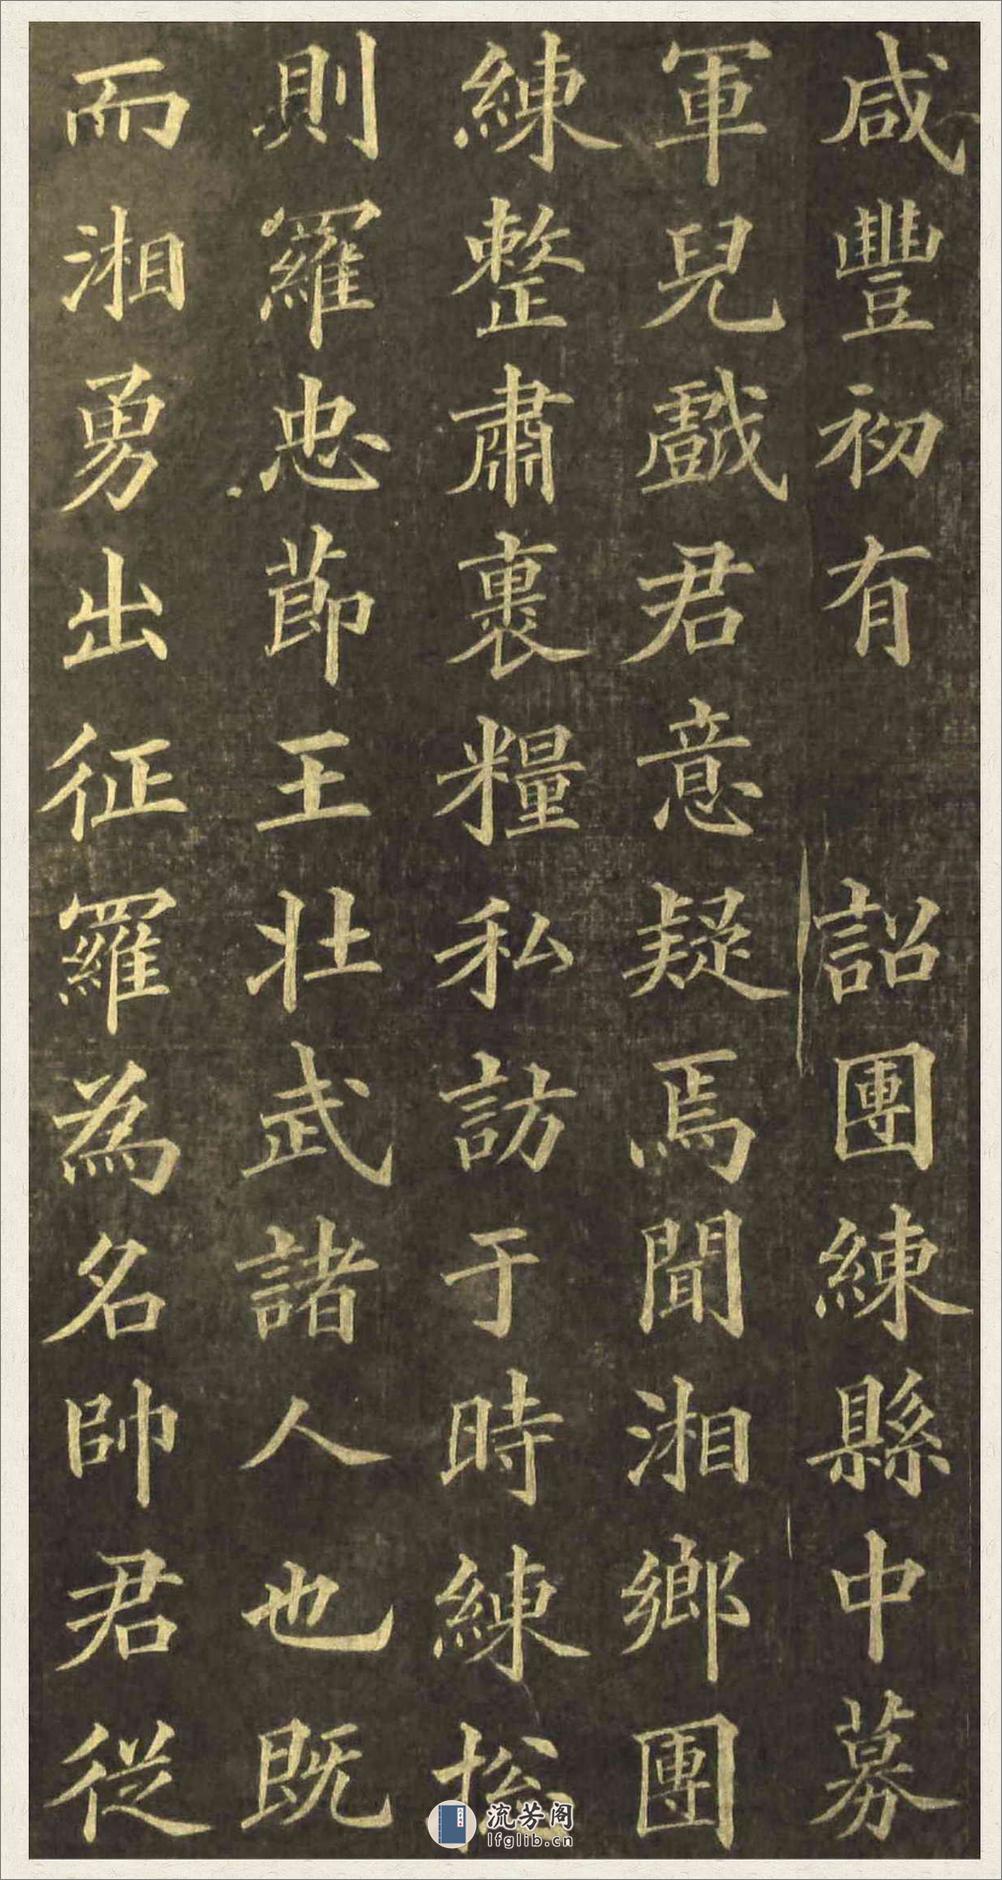 咸豐初有 詔團練縣中募
軍兒戲君意疑焉聞湘鄉團
練整肅裹糧私訪于時練
則羅忠莭王壯武諸人也既
而湘勇出征羅為名帥君從
流芳阁
lfglib.cn